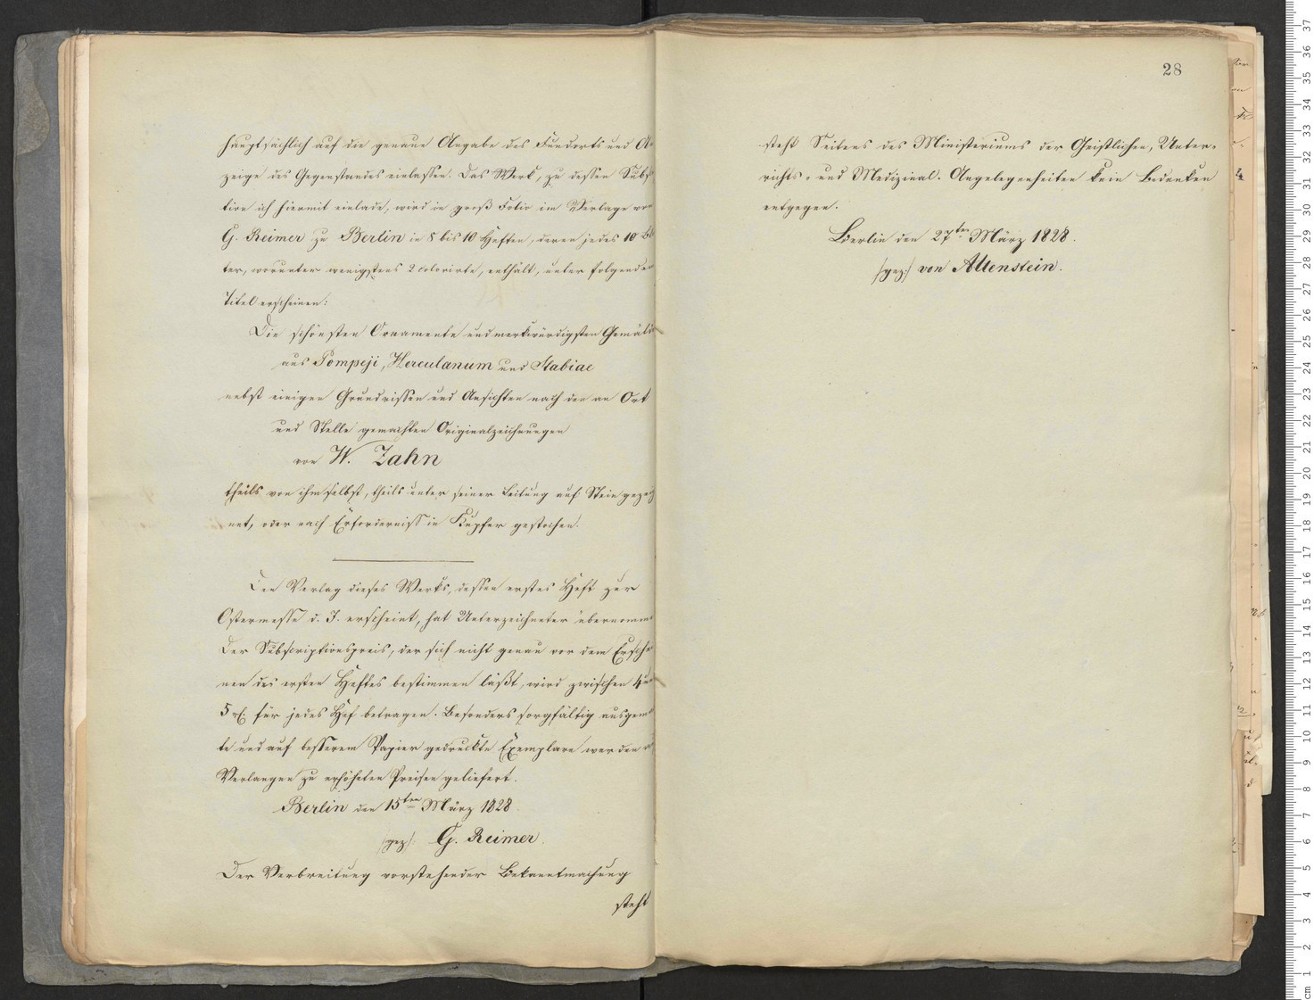 hauptsächlich auf die genaue Angabe des Fundorts und An
zeige des Gegenstandes einlassen. Das Werk, zu dessen Subs
tion ich hiermit einlade, wird in groß Folio im Verlage von
G. Reimer zu Berlin in 8 bis 10 Heften, deren jedes 10 Blä
ter, worunter wenigstens 2 colorirte, enthält, unter folgendem
Titel erscheinen:
Die schönsten Ornamente und merkwürdigsten Gemäld
aus Pompeji, Herculanum und Stabiae
nebst einigen Grundrissen und Ansichten nach den an Ort
und Stelle gemachten Originalzeichnungen
von W. Zahn
theils von ihm selbst, theils unter seiner Leitung auf Stein gezeich
net, oder nach Erforderniss in Kupfer gestochen.
Den Verlag dieses Werks, dessen erstes Heft zur
Ostermesse d. J. erscheint, hat Unterzeichneter übernomm
Der Subscriptionspreis, der sich nicht genau vor dem Ersche
nen des ersten Heftes bestimmen läßt, wird zwischen 4 un
5 rℓ. für jedes Hef betragen. Besonders sorgfältig ausgem
te und auf besserem Papier gedruckte Exemplare werden a
Verlangen zu erhöheten Preisen geliefert.
Berlin den 15ten März 1828.
/gez/ G. Reimer.
Der Verbreitung vorstehender Bekanntmachung
steht
28
steht Seitens des Ministeriums der Geistlichen, Unter-
richts- und Medizinal-Angelegenheiten kein Bedenken
entgegen.
Berlin den 27ten März 1828.
/gez/ von Altenstein.